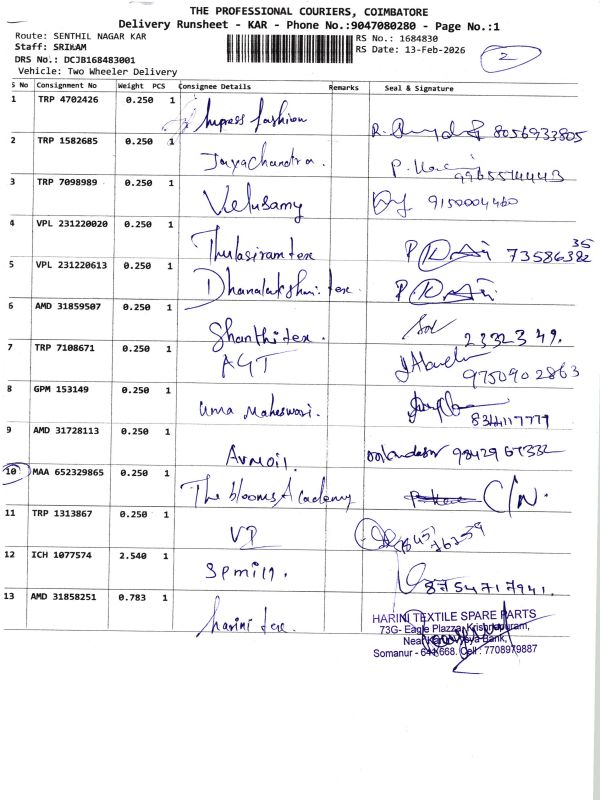 THE PROFESSIONAL COURIERS, COIMBATORE
Delivery Runsheet - KAR - Phone No.:9047080280 - Page No.:1
Route: SENTHIL NAGAR KAR
RS No.: 1684830
Staff: SRIKAM
RS Date: 13-Feb-2026
2
DRS No.: DCJB168483001
Vehicle: Two Wheeler Delivery
S No Consignment No Weight PCS Consignee Details Remarks Seal & Signature
1 TRP 4702426 0.250 1 Impress fashion 8056933805
2 TRP 1582685 0.250 1 Jayachandra.
3 TRP 7098989 0.250 1 Velusamy 9150004460
4 VPL 231220020 0.250 1 Thulasiram tex
5 VPL 231220613 0.250 1 Dhanalakshmi tex.
6 AMD 31859507 0.250 1 Shanthi tex. 2332349.
7 TRP 7108671 0.250 1 AGT 9750902863
8 GPM 153149 0.250 1 Uma Maheswari. 8344117779
9 AMD 31728113 0.250 1
10 MAA 652329865 0.250 1 The blooms Academy C/N.
11 TRP 1313867 0.250 1
12 ICH 1077574 2.540 1 8754717941.
13 AMD 31858251 0.783 1 harini tex.
HARINI TEXTILE SPARE PARTS
73G- Eagle Plazza, Krishnapuram,
Near Bank,
Somanur - Cell : 7708979887